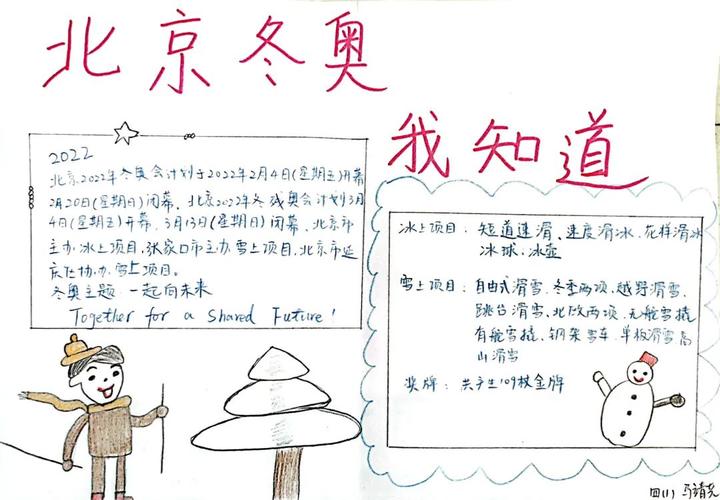 北京冬奥
我知道
2022
北京2022年冬奥会计划于2022年2月4日(星期五)开幕
2月20日(星期日)闭幕,北京2022年冬残奥会计划3月
4日(星期五)开幕,3月13日(星期日)闭幕,北京市
主办冰上项目,张家口市主办雪上项目,北京市延
庆区协办雪上项目。
冬奥主题:一起向未来
Together for a Shared Future!
冰上项目:短道速滑、速度滑冰、花样滑冰
冰球、冰壶
雪上项目:自由式滑雪、冬季两项、越野滑雪、
跳台滑雪、北欧两项、无舵雪橇
有舵雪橇、钢架雪车、单板滑雪高
山滑雪
奖牌:共产生109枚金牌
四(1)